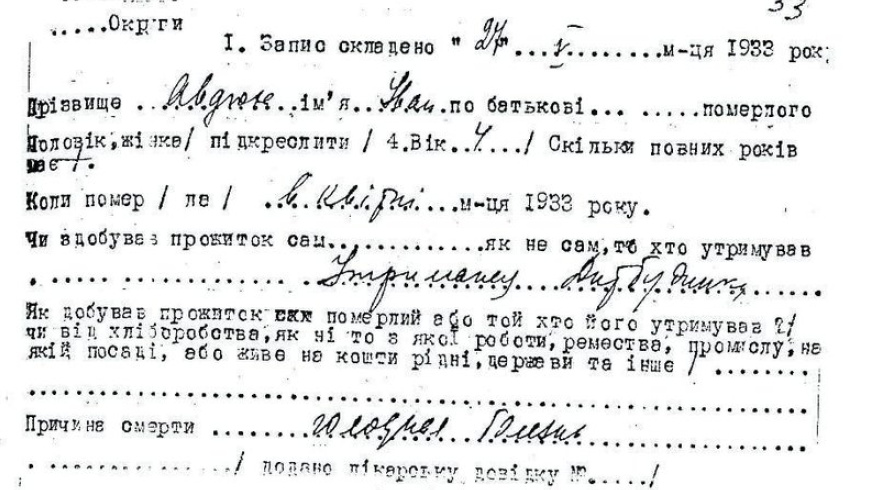 33
.....Округи
I. Запис складено "27"...V........м-ця 1933 рок
Прізвище ..Авдюк..ім'я..Іван.по батькові... .....померлого
Чоловік,жінка/ підкреслити / 4.Вік..4.../ Скільки повних років
має/.
Коли помер / ла / .в.квітні...м-ця 1933 року.
Чи здобував прожиток сам.............як не сам,то хто утримував
Утриманец Дитбудинку
Як добував прожиток сам померлий або той хто його утримував ?/
чи від хліборобства,як ні то з якої роботи,ремества, промислу,на
якій посаді, або живе на кошти рідні,держави та інше / ........
Причина смерти .......голодная болезнь
. ............./ додано лікарську довідку №...../